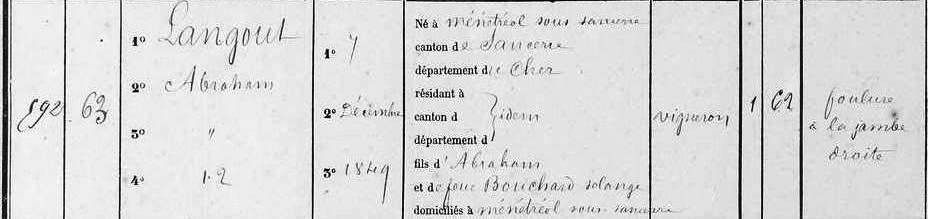 192
63
1º Langout
2º Abraham
3º "
4º 1.2
1º 7
2º Décembre
3º 1849
Né à ménétréol sous sancerre
canton de Sancerre
département du Cher
résidant à
canton d } idem
département d
fils d'Abraham
et de feue Bouchard solange
domiciliés à ménétréol sous-sancerre
vigneron
1 62
foulure
à la jambe
droite